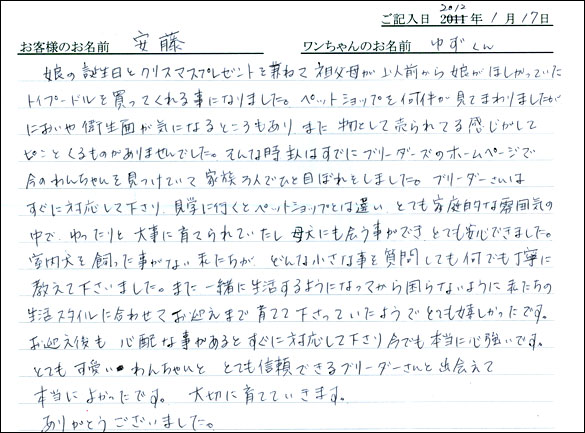 2012
ご記入日 2011年 1月 17日
お客様のお名前 安藤 ワンちゃんのお名前 ゆずくん
娘の誕生日とクリスマスプレゼントを兼ねて祖父母が以前から娘がほしがっていた
トイプードルを買ってくれる事になりました。ペットショップを何件か見てまわりましたが
においや衛生面が気になるところもあり、また物として売られてる感じがして
ピンとくるものがありませんでした。そんな時主人はすでにブリーダーズのホームページで
今のわんちゃんを見つけていて家族3人でひと目ぼれをしました。ブリーダーさんは
すぐに対応して下さり、見学に行くとペットショップとは違い、とても家庭的な雰囲気の
中で、ゆったりと大事に育てられていたし母犬にも会う事ができ、とても安心できました。
室内犬を飼った事がない私たちが、どんな小さな事を質問しても何でも丁寧に
教えて下さいました。また一緒に生活するようになってから困らないように私たちの
生活スタイルに合わせてお迎えまで育てて下さっていたようでとても嬉しかったです。
お迎え後も心配な事があるとすぐに対応して下さり今でも本当に心強いです。
とても可愛いわんちゃんととても信頼できるブリーダーさんと出会えて
本当によかったです。大切に育てていきます。
ありがとうございました。